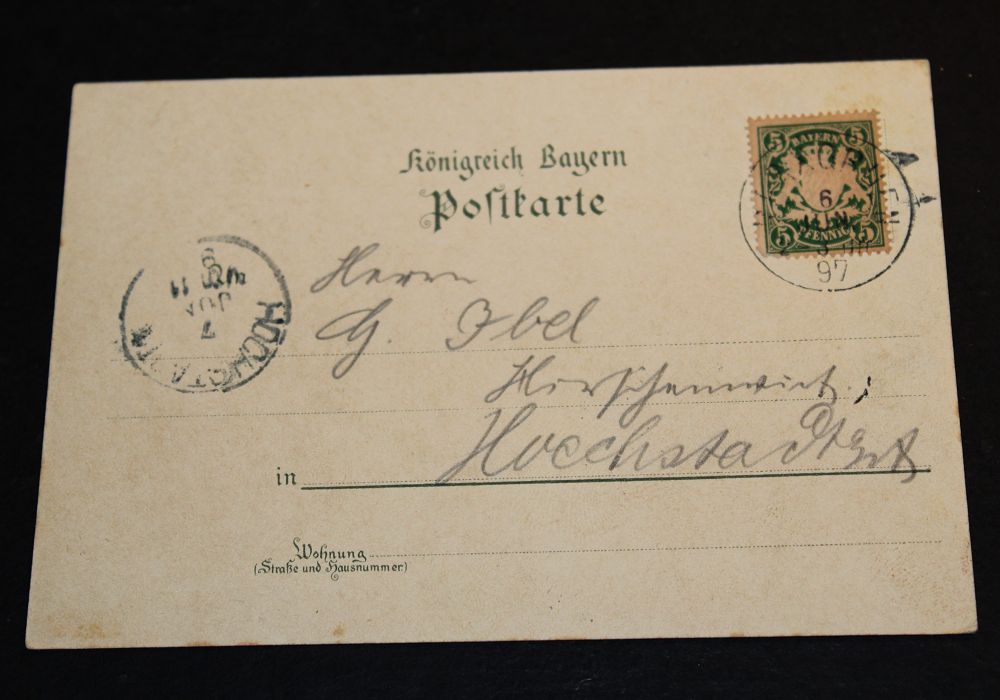 Königreich Bayern
Postkarte
5 BAYERN 5
5 PFENNIG 5
6
JUN
97
7
JUN
HÖCHSTADT
Herrn
G. Ibel
Hirschenwirt
in Hoechstadt
Wohnung
(Straße und Hausnummer)